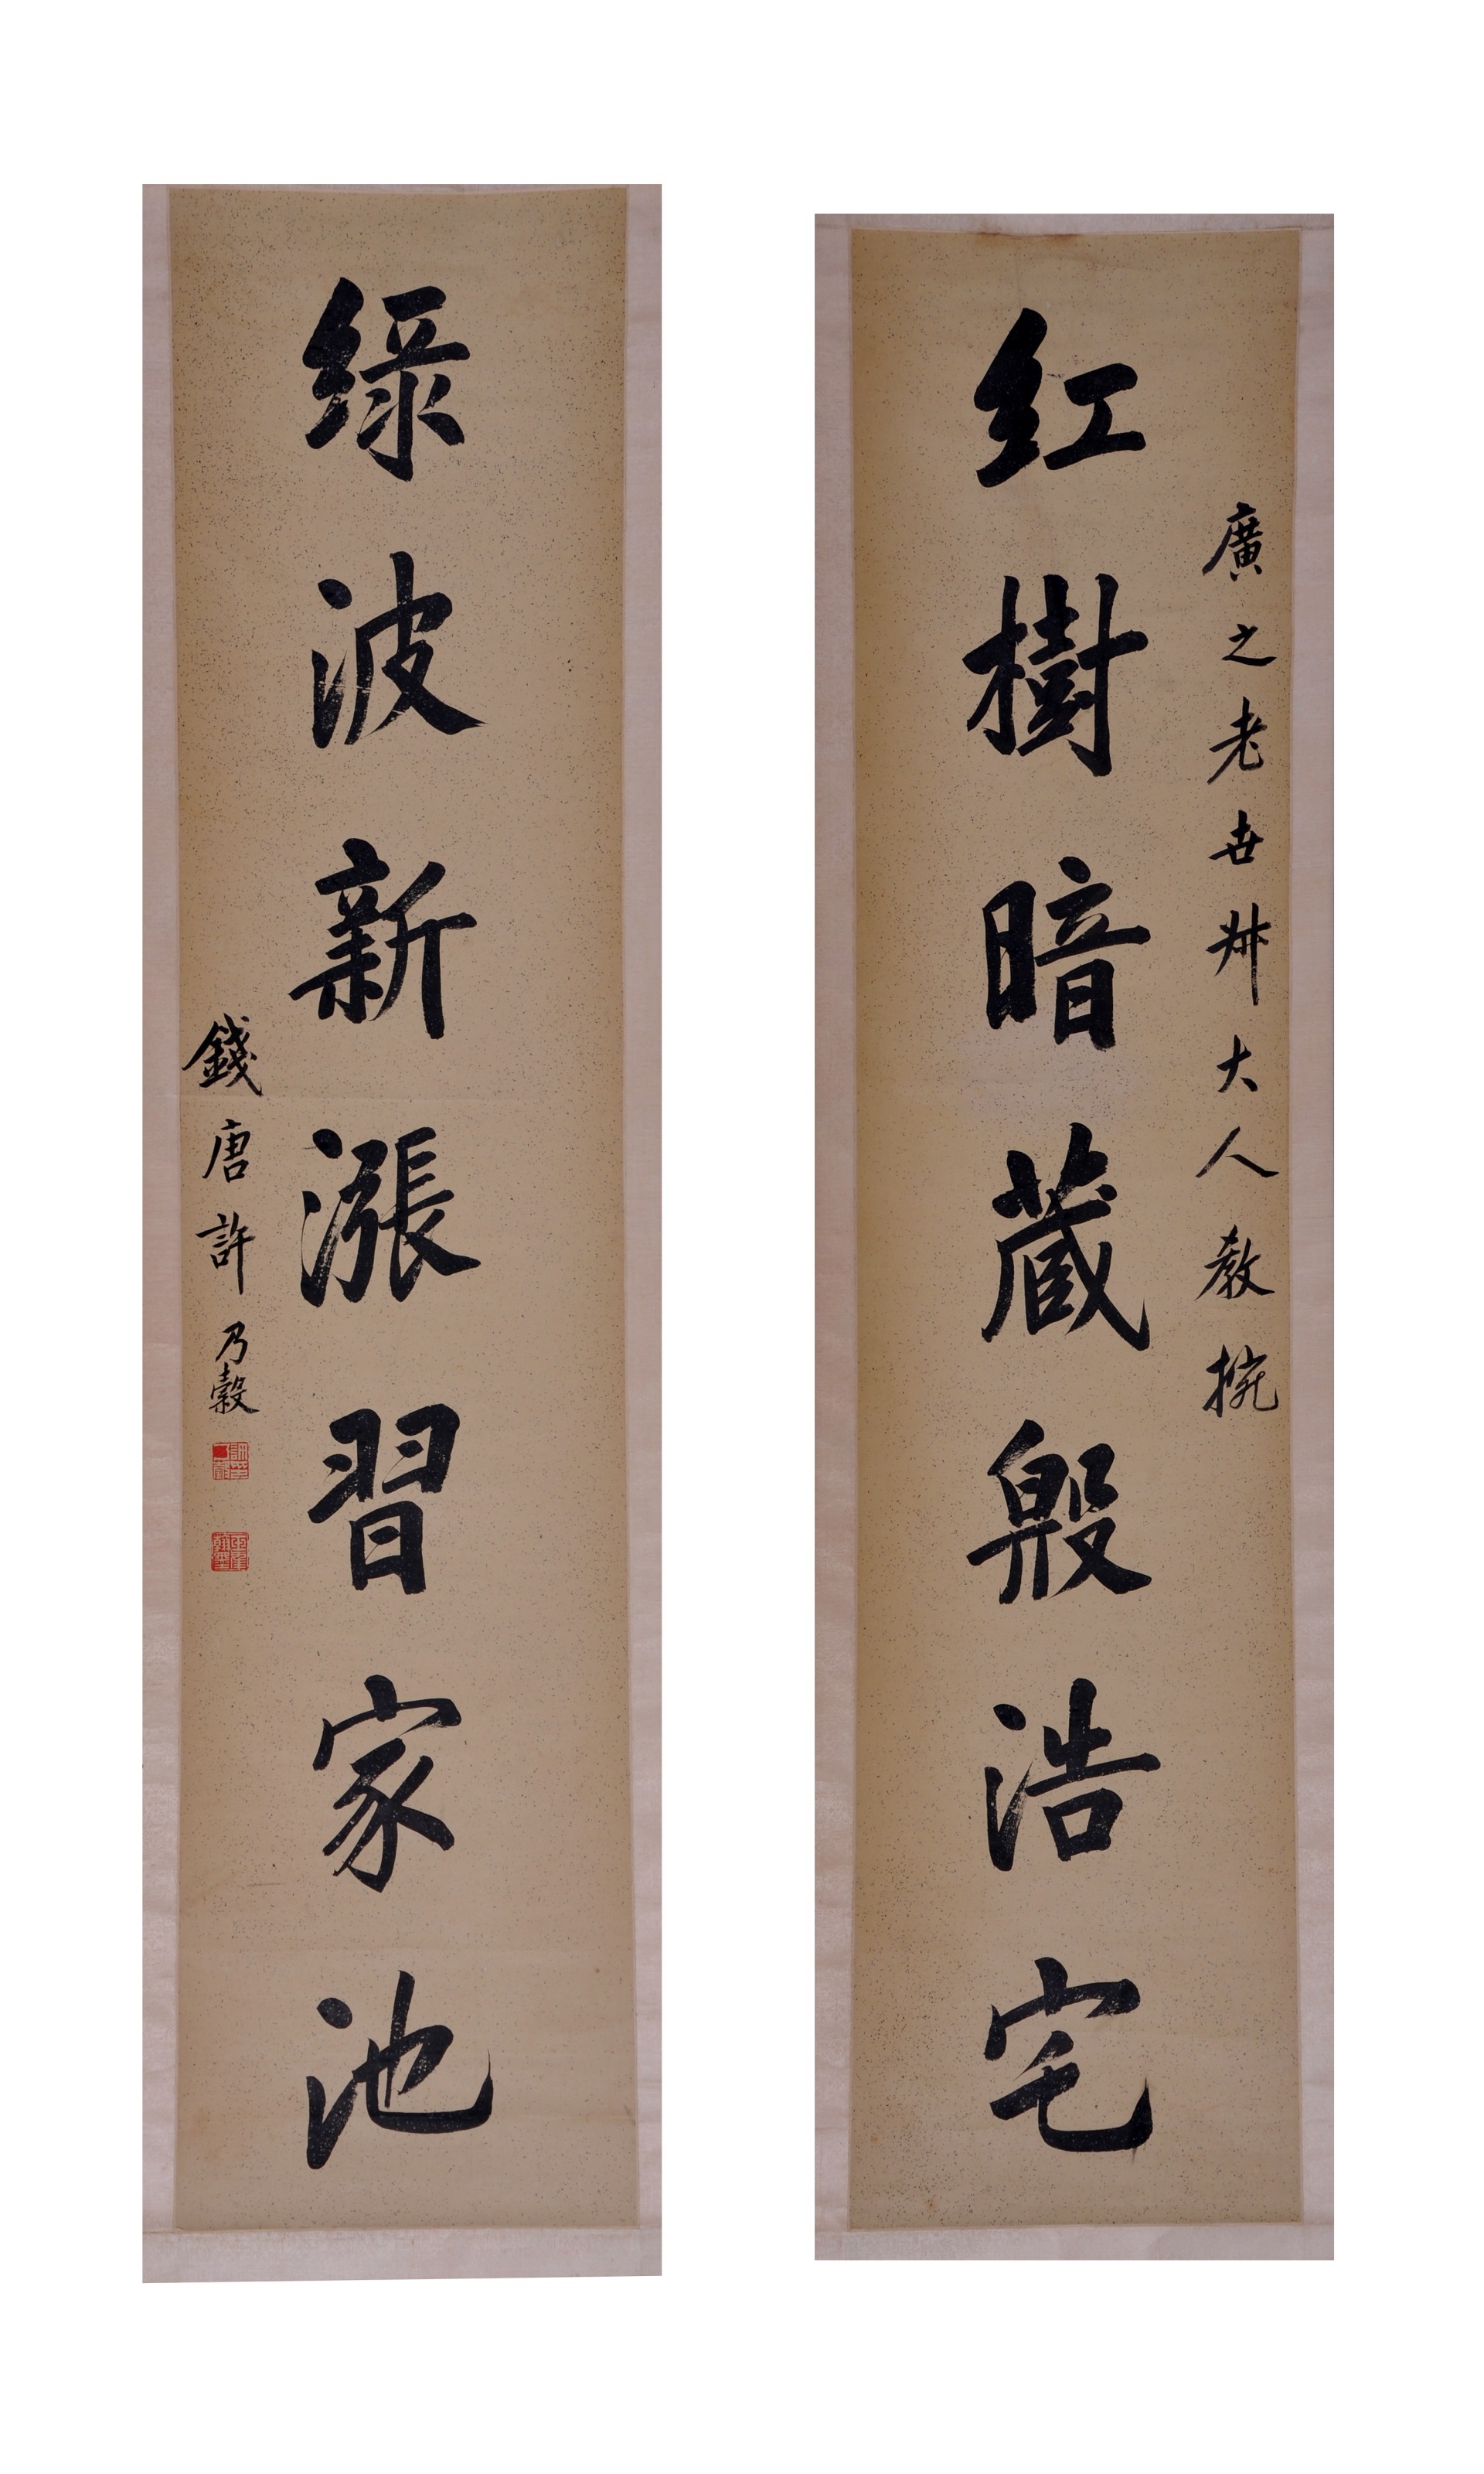 廣之老世叔大人教捥
红樹暗藏殷浩宅
緑波新漲習家池
錢唐許乃穀